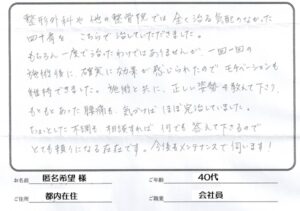 整形外科や他の整骨院では全く治る気配のなかった
四十肩を、こちらで治していただきました。
もちろん一度で治ったわけではありませんが、一回一回の
施術後に確実に効果が感じられたのでモチベーションも
維持できました。施術と共に、正しい姿勢も教えて下さり、
もともとあった腰痛も、気づけばほぼ完治していました。
ちょっとした不調も相談すれば何でも答えて下さるので
とても頼りになる存在です。今後もメンテナンスで伺います!
お名前 匿名希望 様 ご年齢 40代
ご住所 都内在住 ご職業 会社員